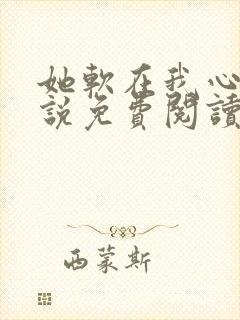 她軟在我心
説免費閱讀
西蒙斯